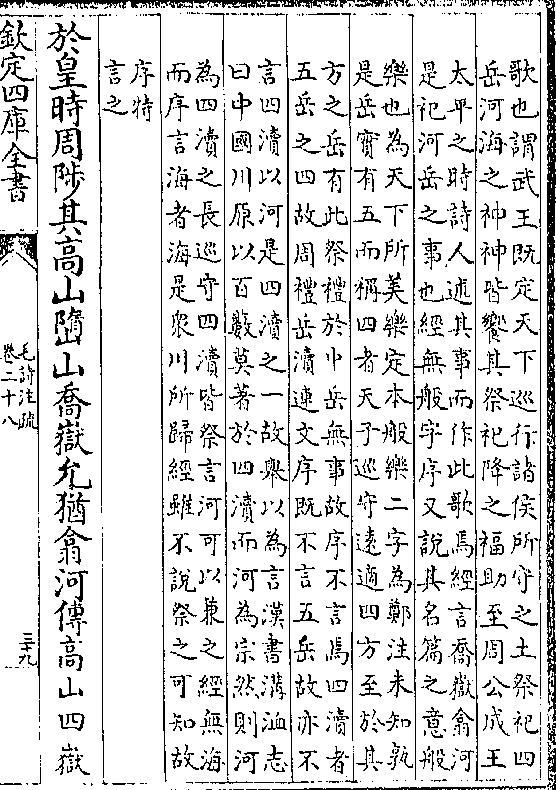 歌也謂武王既定天下巡行諸侯所守之土祭祀四
岳河海之神神皆饗其祭祀降之福助至周公成王
太平之時詩人述其事而作此歌焉經言喬嶽翕河
是祀河岳之事也經無般字序又說其名篇之意般
樂也為天下所美樂定本般樂二字為鄭注未知孰
是岳實有五而稱四者天子巡守遠適四方至於其
方之岳有此祭禮於中岳無事故序不言焉四瀆者
五岳之四故周禮岳瀆連文序既不言五岳故亦不
言四瀆以河是四瀆之一故舉以為言漢書溝洫志
曰中國川原以百數莫著於四瀆而河為宗然則河
為四瀆之長巡守四瀆皆祭言河可以兼之經無海
而序言海者海是衆川所歸經雖不說祭之可知故
序特
言之
於皇時周陟其高山嶞山喬嶽允猶翕河傳高山四嶽
欽定四庫全書
毛詩注疏
卷二十八
三十九